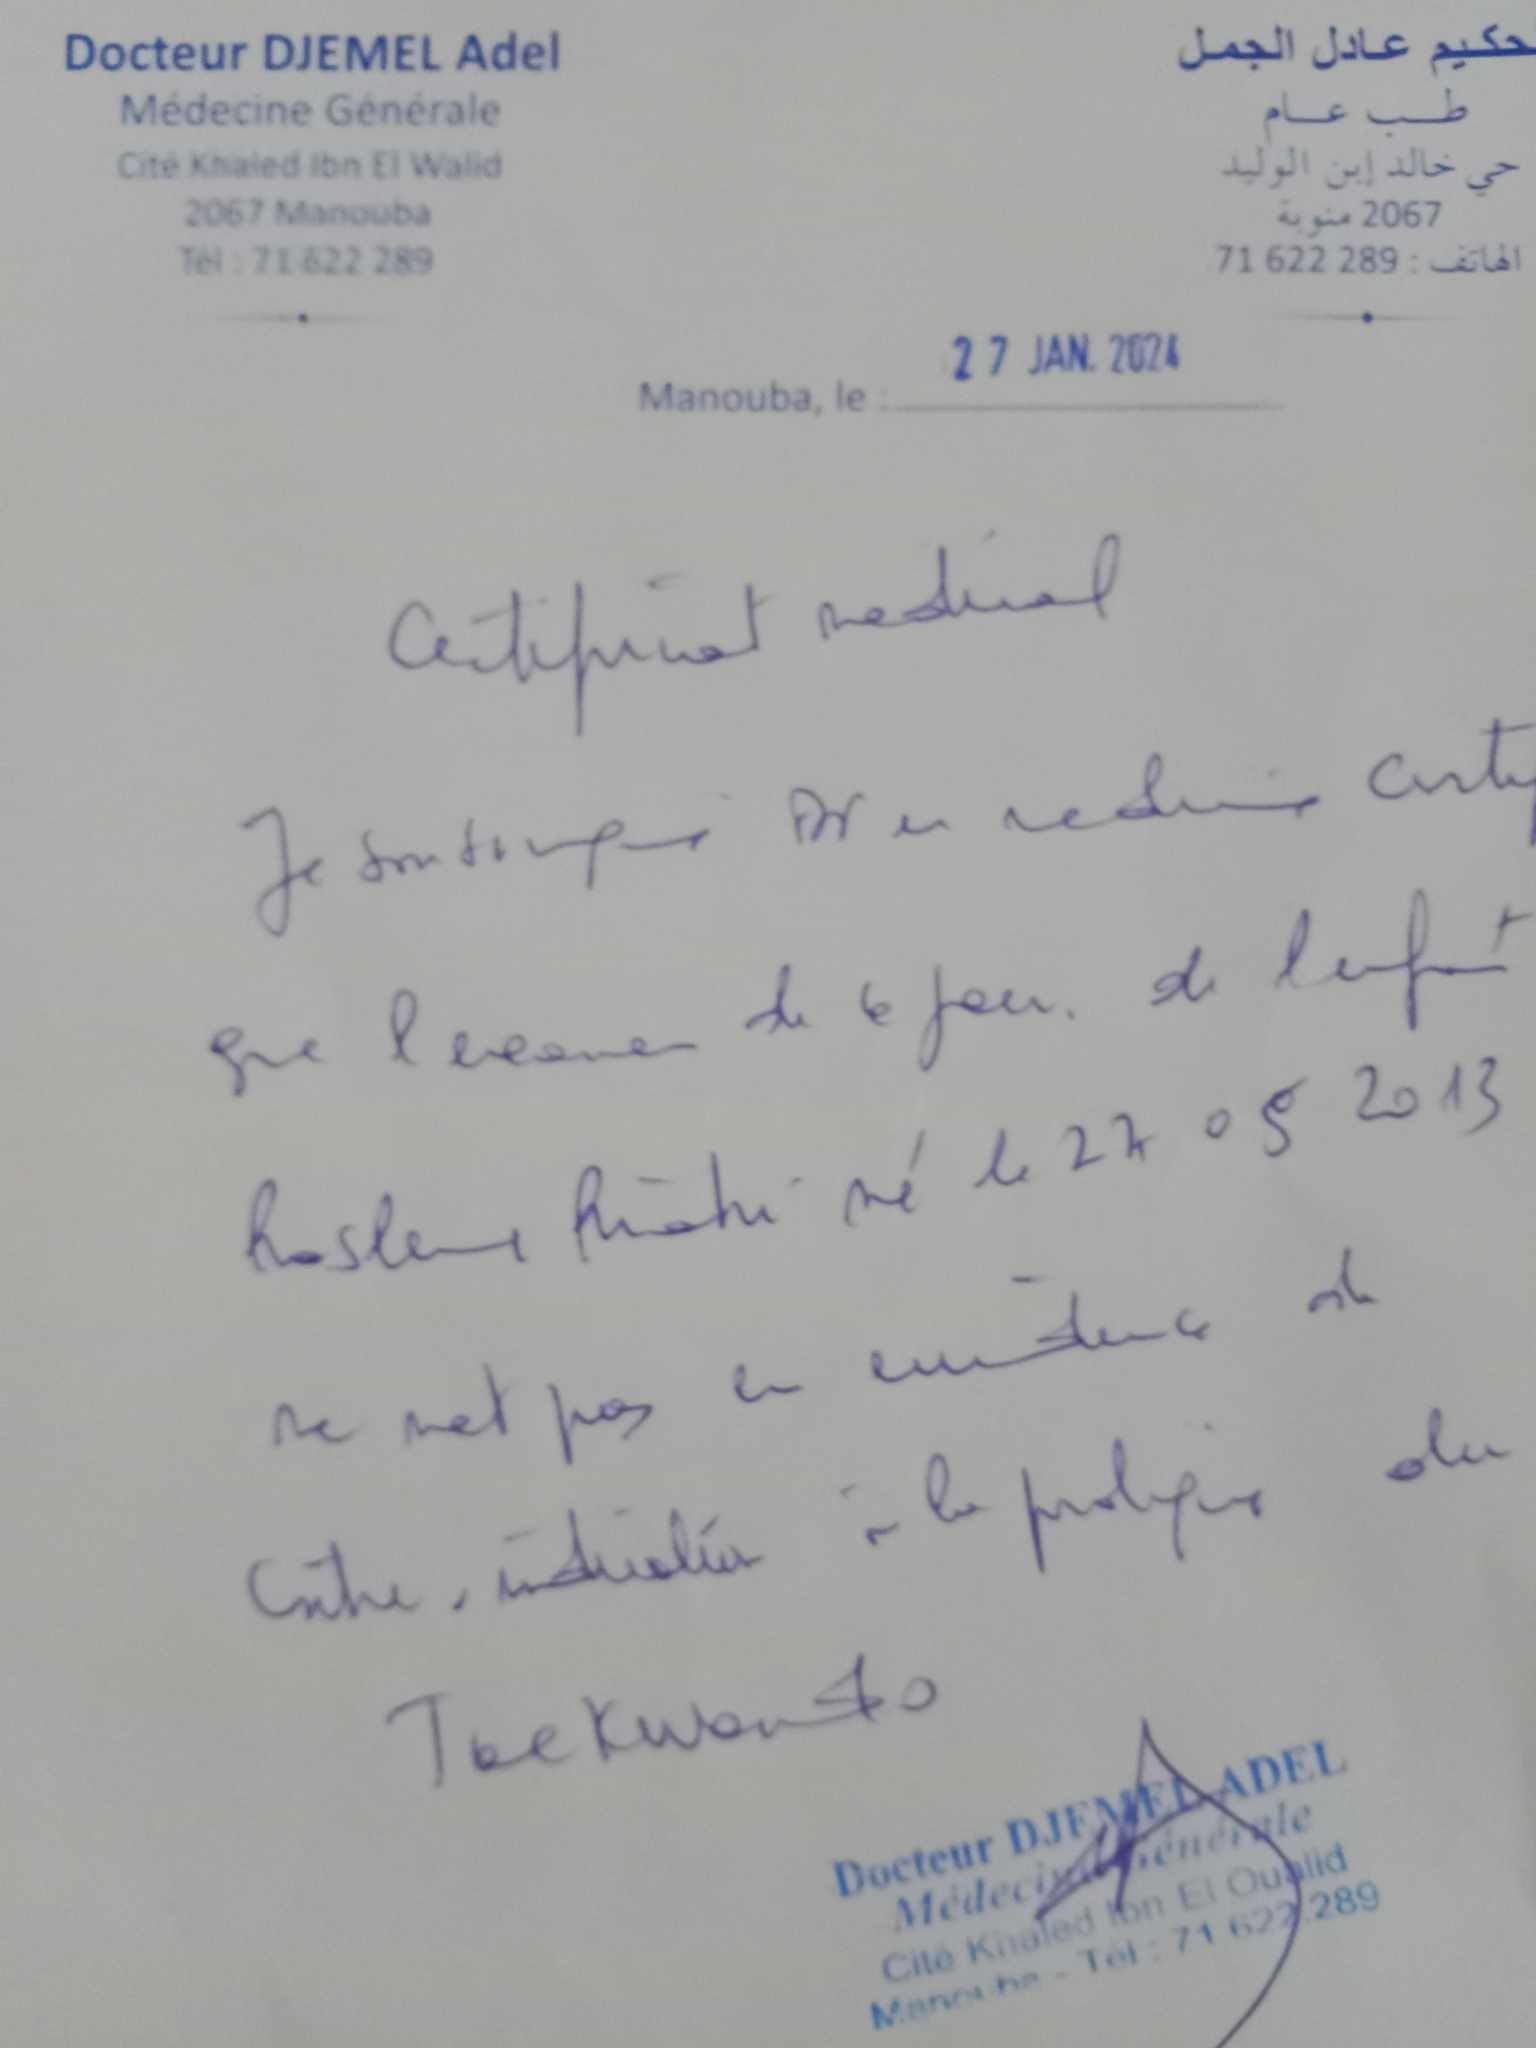 Docteur DJEMEL Adel
Médecine Générale
Cité Khaled Ibn El Walid
2067 Manouba
Tél : 71 622 289
حكيم عادل الجمل
طب عام
حي خالد إبن الوليد
2067 منوبة
الهاتف : 71 622 289
27 JAN. 2024
Manouba, le :
Certificat medical
Je soussigné Dr en medecine Certif
que l'examen de ce jour. de l'enfant
né le 27 05 2013
ne met pas en evidence de
contre, indication à la pratique du
TaeKwondo
Docteur DJEMEL ADEL
Médecine Générale
Cité Khaled Ibn El Oualid
Manouba - Tél : 71 622.289